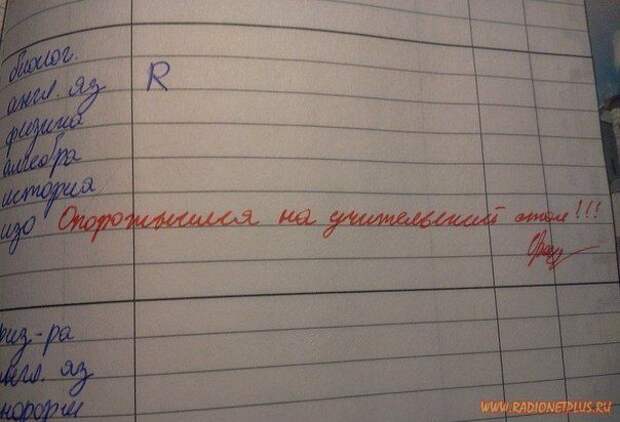 биолог.
англ. яз R
физика
алгебра
история
изо Опорожнился на учительский стол!!!
физ-ра
англ. яз
информ
WWW.RADIONETPLUS.RU